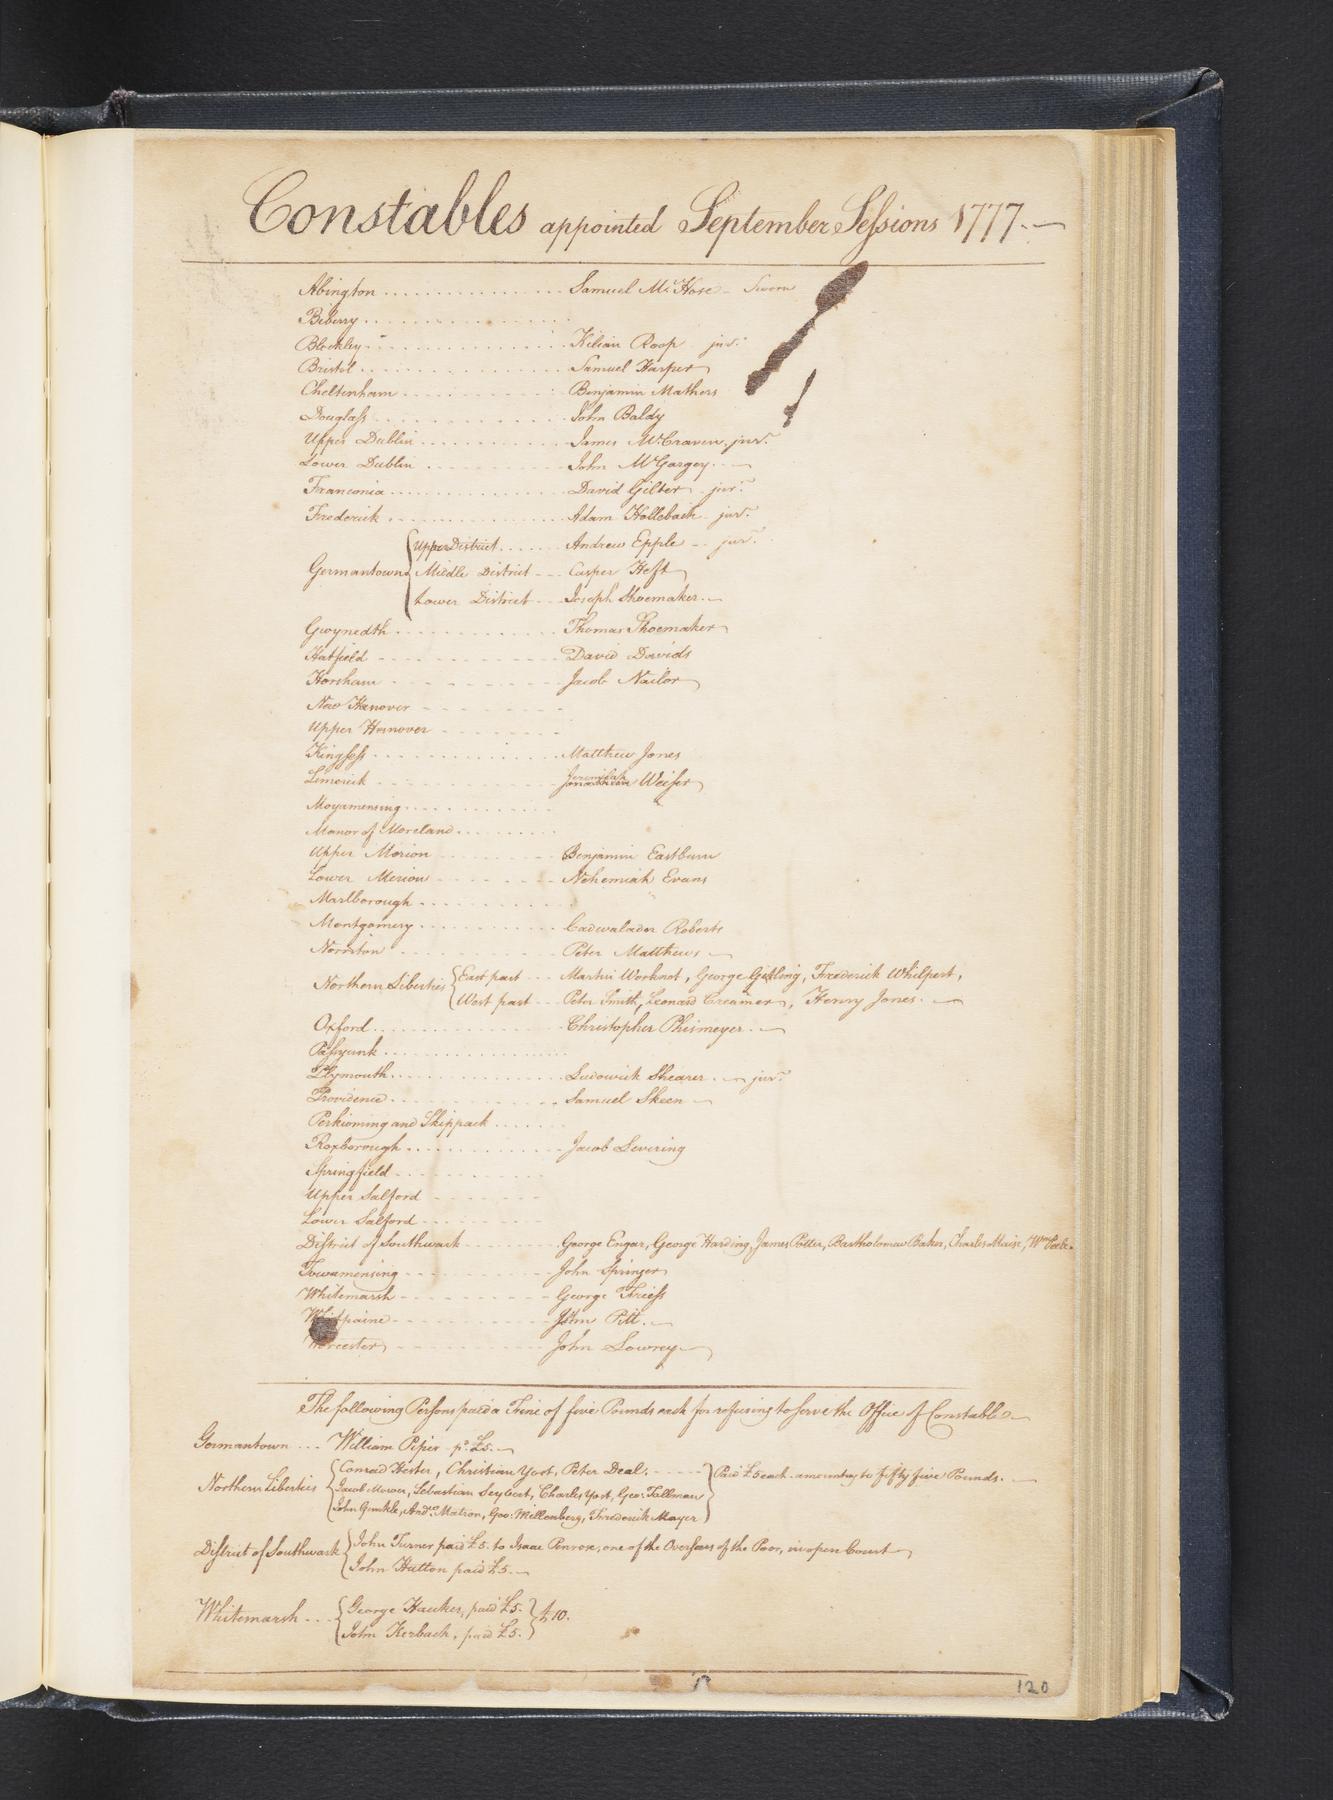 Constables appointed September Sessions 1777.
Abington Samuel McHose - Sworn
Biberry
Blockley Kilian Roop jur.
Bristol Samuel Harper
Cheltenham Benjamin Mathers
Douglass John Baldy
Upper Dublin James McCraven, jur.
Lower Dublin John McGargey.
Franconia David Gilter jur.
Frederick Adam Hollebach jur.
Upper District Andrew Epple - jur.
Germantown Middle District Casper Heft
Lower District Joseph Shoemaker.
Gwynedth Thomas Shoemaker
Hatfield David Davids
Horsham Jacob Nailor
New Hanover
Upper Hanover
Kingsess Matthew Jones
Limerick Jeremiah Weiser
Moyamensing
Manor of Moreland
Upper Merion Benjamin Eastburn
Lower Merion Nehemiah Evans
Marlborough
Montgomery Cadwalader Roberts
Norriton Peter Matthews
Northern Liberties East part Martin Worknot, George Gesling, Frederick Whilpert,
West part Peter Smith, Leonard Creamer, Henry Jones.
Oxford Christopher Phismeyer.
Passyunk
Plymouth Ludowick Shearer. jur.
Providence Samuel Skeen
Perkioming and Skippack
Roxborough Jacob Levering
Springfield
Upper Salford
Lower Salford
District of Southwark George Engar, George Harding, James Potter, Bartholomew Baker, Charles Maise, Wm.
Towamensing John Springer
Whitemarsh George Friess
Whitpaine John Pitt.
Worcester John Lowrey
The following Persons paid a Fine of five Pounds each for refusing to serve the Office of Constable
Germantown ... William Piper pd. £5.
Conrad Hester, Christian Yost, Peter Deal. Paid £5 each amounting to fifty five Pounds.
Northern Liberties Jacob Mower, Sebastian Seybert, Charles Yost, Geo: Tallman
John Gunkle, Andw. Matson, Geo: Millenberg, Frederick Mayer
District of Southwark John Turner paid £5. to Isaac Penrose, one of the Overseers of the Poor, in open Court
John Hutton paid £5.
Whitemarsh ... George Hawker, paid £5. £10.
John Kerbach, paid £5.
120